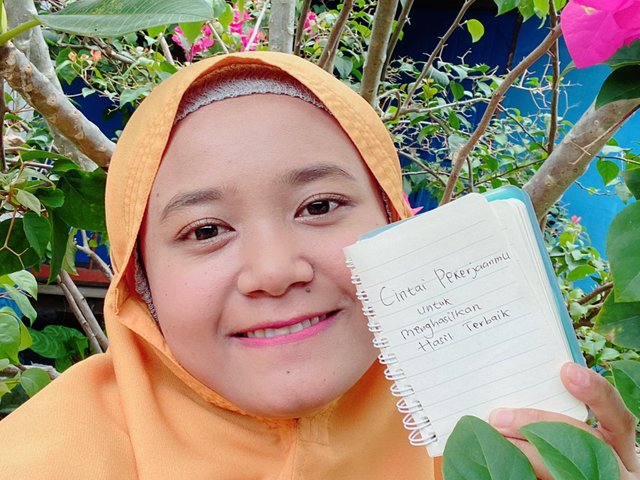 Cintai Pekerjaanmu
untuk
menghasilkan
Hasil Terbaik